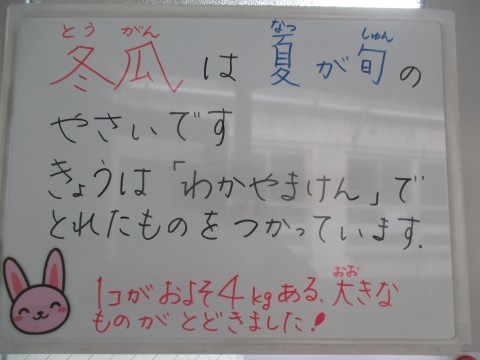 とう がん なつ しゅん
冬瓜 は 夏 が 旬 の
やさいです
きょうは「わかやまけん」で
とれたものを つかっています.
おお
1コが およそ4kgある、大きな
ものが とどきました!